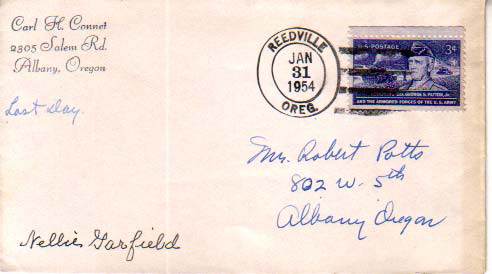 Carl H. Connet
2305 Salem Rd.
Albany, Oregon
Last Day
REEDVILLE
JAN
31
1954
OREG.
U.S. POSTAGE 3¢
GEN. GEORGE S. PATTON, JR.
AND THE ARMORED FORCES OF THE U.S. ARMY
Mr. Robert Potts
802 W. 5th
Albany Oregon
Nellie Garfield